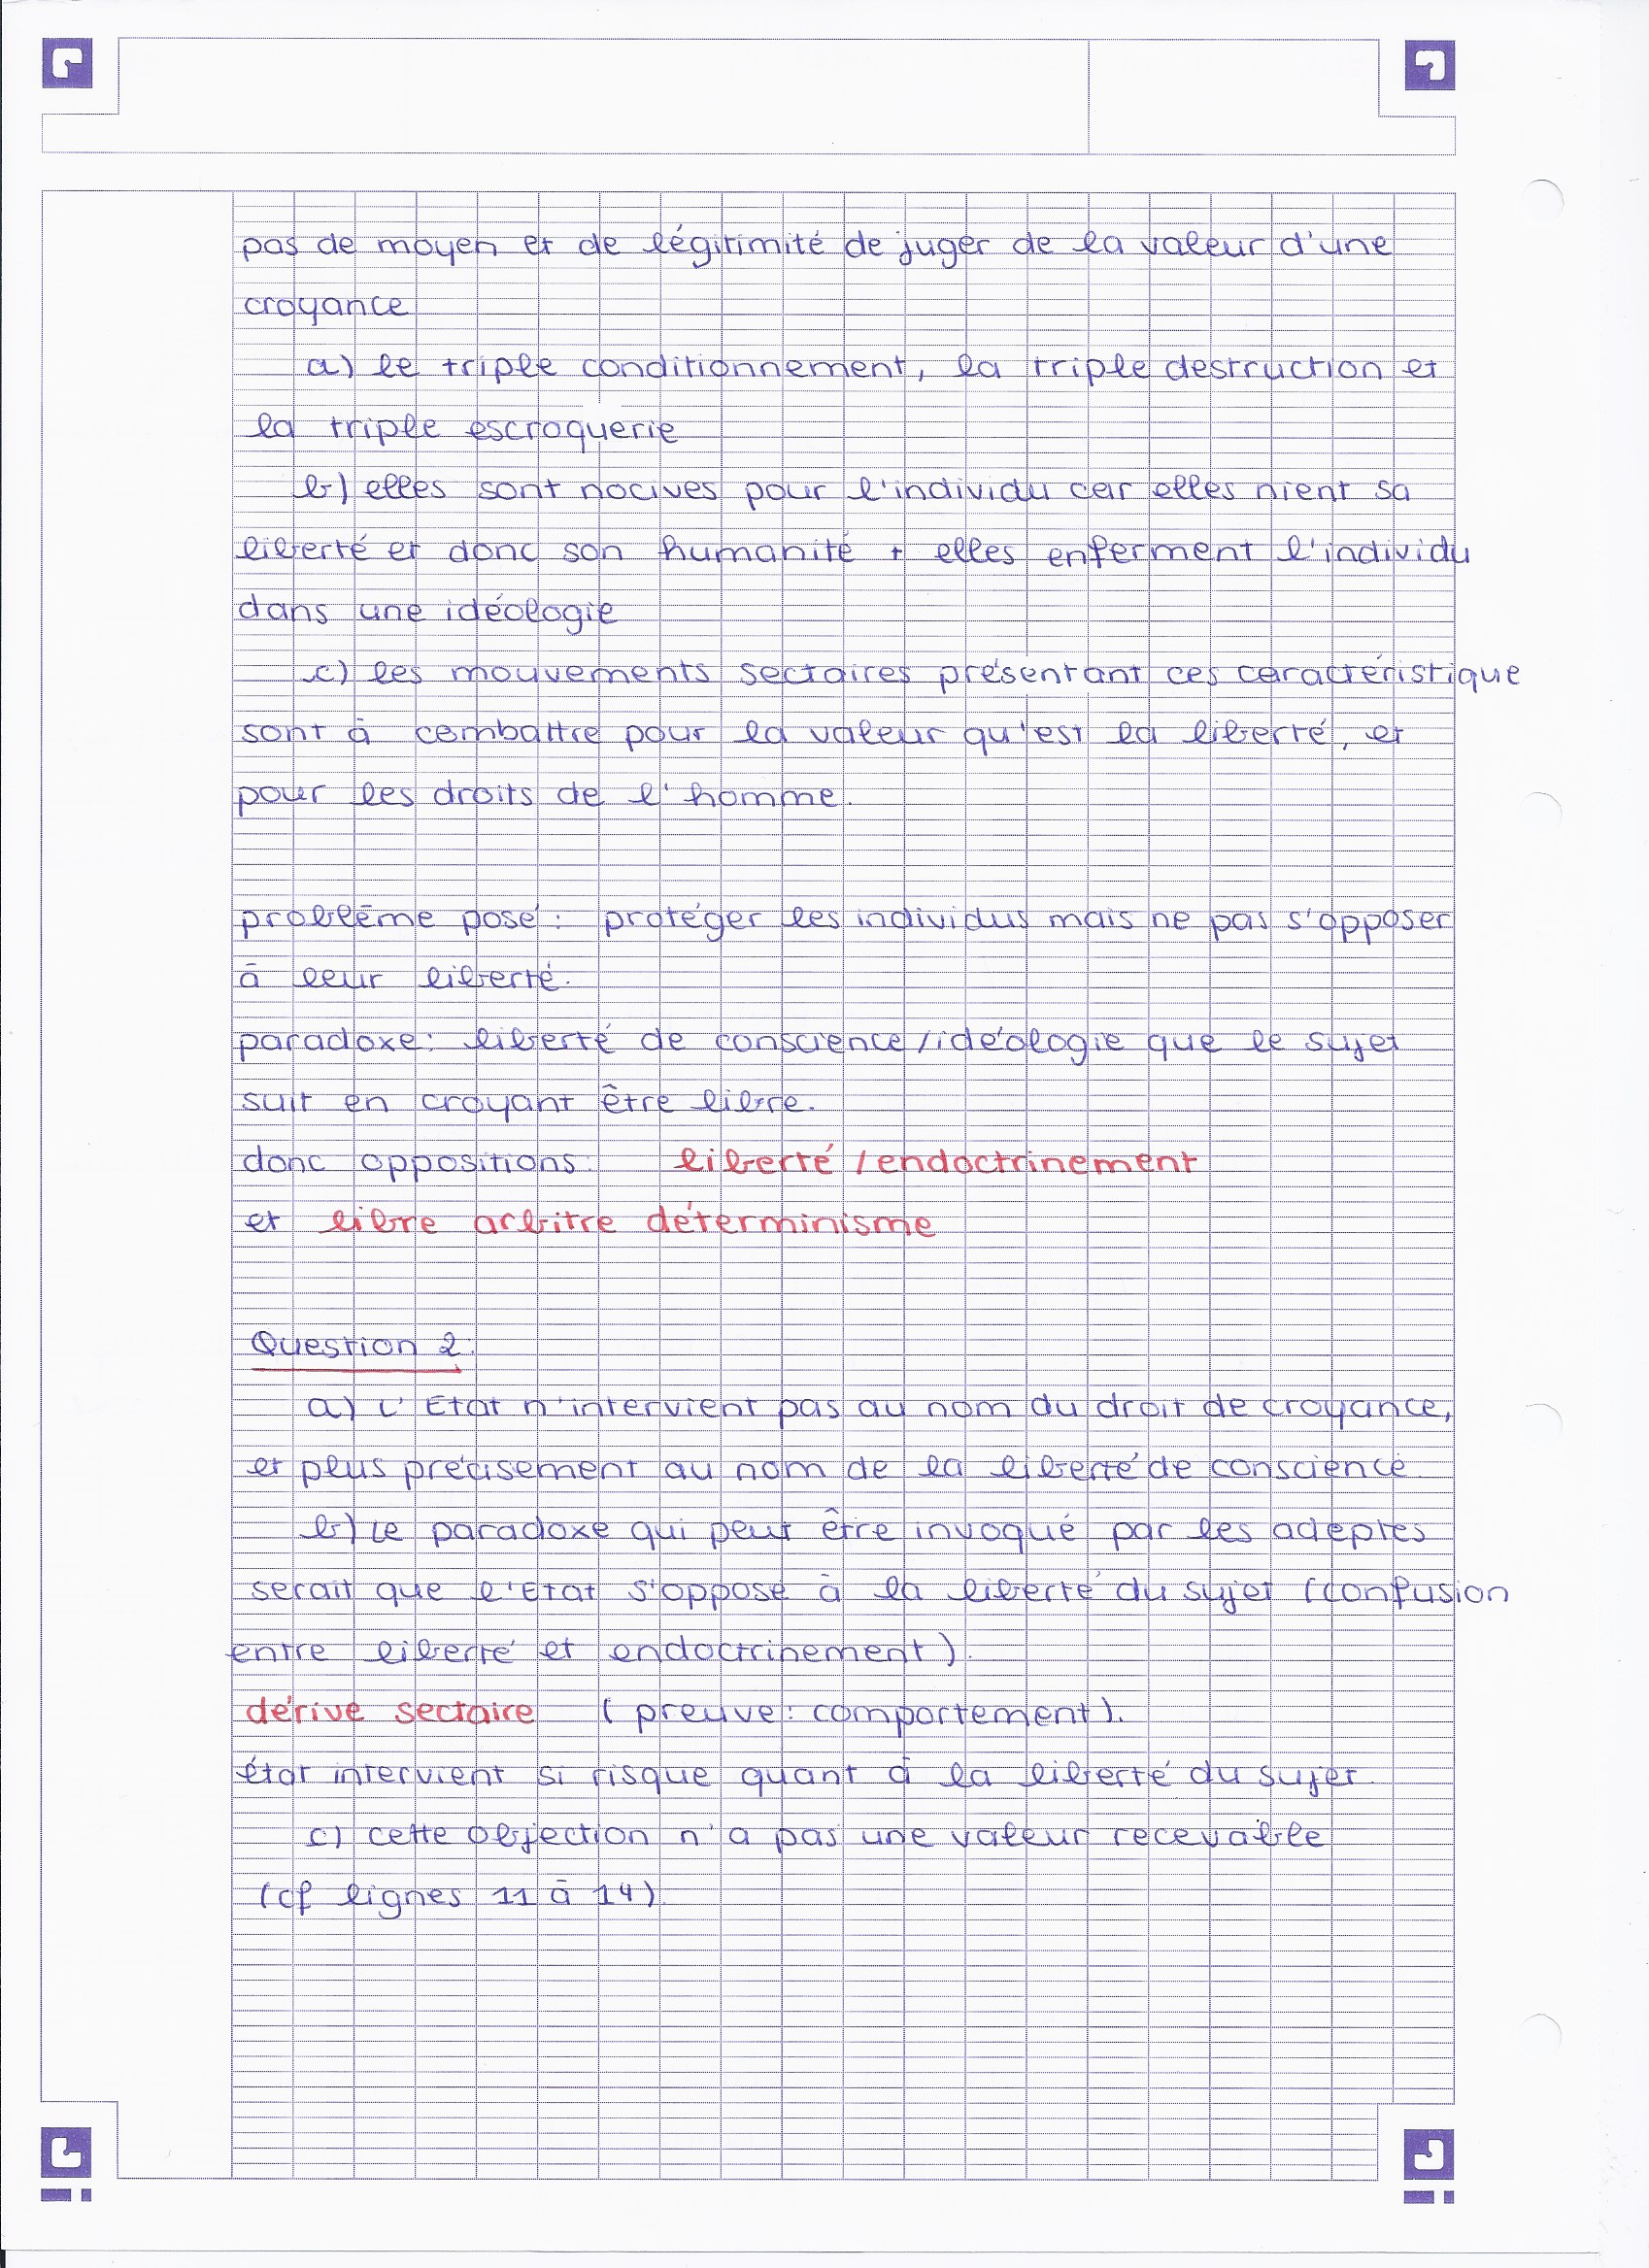 pas de moyen et de légitimité de juger de la valeur d'une
croyance
a) le triple conditionnement, la triple destruction et
la triple escroquerie
b) elles sont nocives pour l'individu car elles nient sa
liberté et donc son humanité + elles enferment l'individu
dans une idéologie
c) les mouvements sectaires présentant ces caractéristique
sont à combattre pour la valeur qu'est la liberté, et
pour les droits de l'homme.
problème posé : protéger les individus mais ne pas s'opposer
à leur liberté.
paradoxe: liberté de conscience / idéologie que le sujet
suit en croyant être libre.
donc oppositions: liberté / endoctrinement
et libre arbitre déterminisme
Question 2:
a) L'Etat n'intervient pas au nom du droit de croyance,
et plus précisement au nom de la liberté de conscience
b) Le paradoxe qui peut être invoqué par les adeptes
serait que l'Etat s'oppose à la liberté du sujet (confusion
entre liberté et endoctrinement).
dérive sectaire (preuve: comportement).
état intervient si risque quant à la liberté du sujet.
c) cette objection n'a pas une valeur recevable
(cf lignes 11 à 14).